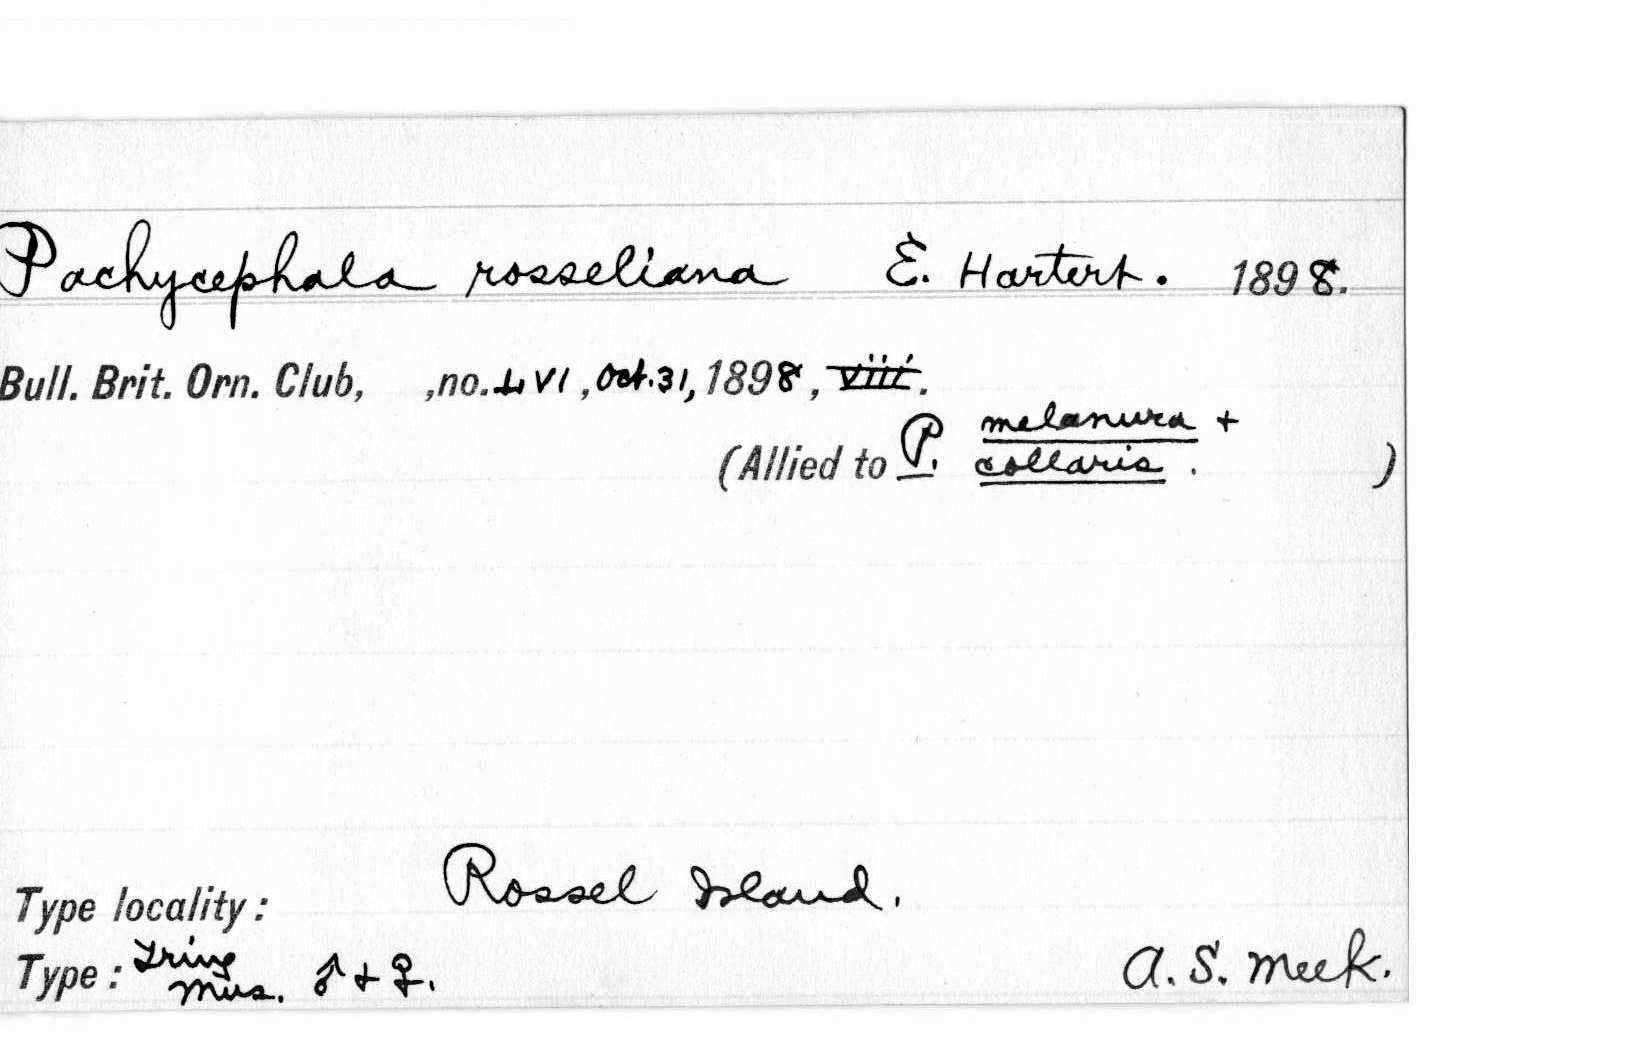 Pachycephala rosseliana E. Hartert. 1898.
Bull. Brit. Orn. Club, ,no. LVI, Oct. 31, 1898, viii.
(Allied to P. melanura +
collaris. )
Type locality: Rossel Island.
Type: Tring
Mus. ♂ + ♀. A. S. Meek.